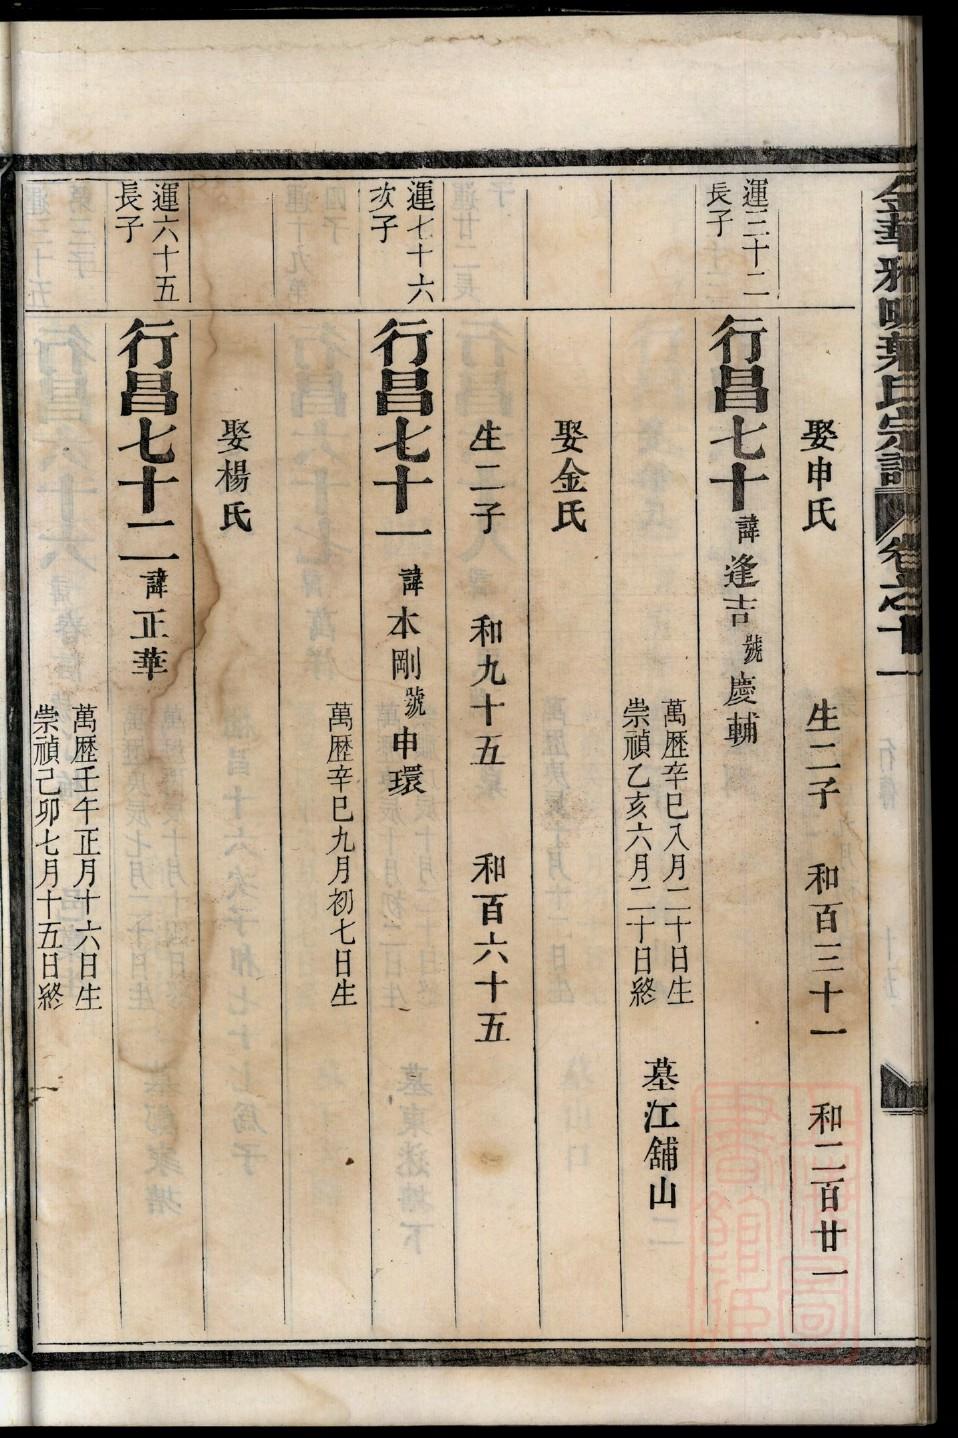 金華雅畈葉氏宗譜 卷之十一
娶申氏 生二子 和百三十一 和二百廿一
運三十二長子
行昌七十 諱逢吉 號慶輔
萬歷辛巳八月二十日生
崇禎乙亥六月二十日終
墓江舖山
娶金氏
生二子 和九十五 和百六十五
運七十六次子
行昌七十一 諱本剛 號申環
萬歷辛巳九月初七日生
娶楊氏
運六十五長子
行昌七十二 諱正華
萬歷壬午正月十六日生
崇禎己卯七月十五日終